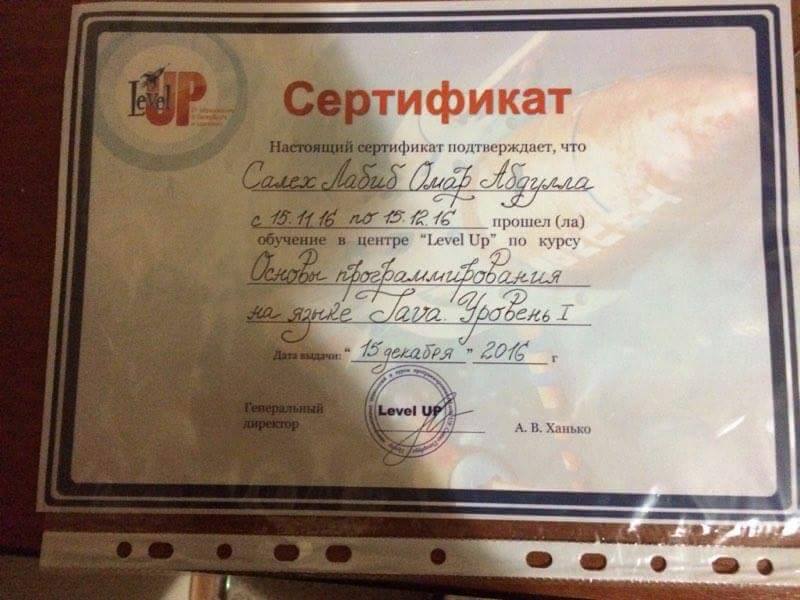 Level UP
Сертификат
Настоящий сертификат подтверждает, что
Салех Лабиб Омар Абдулла
с 15.11.16 по 15.12.16 прошел (ла)
обучение в центре “Level Up” по курсу
Основы программирования
на языке Java. Уровень I
Дата выдачи: “ 15 декабря ” 2016 г
Генеральный
директор
Level UP
А. В. Ханько